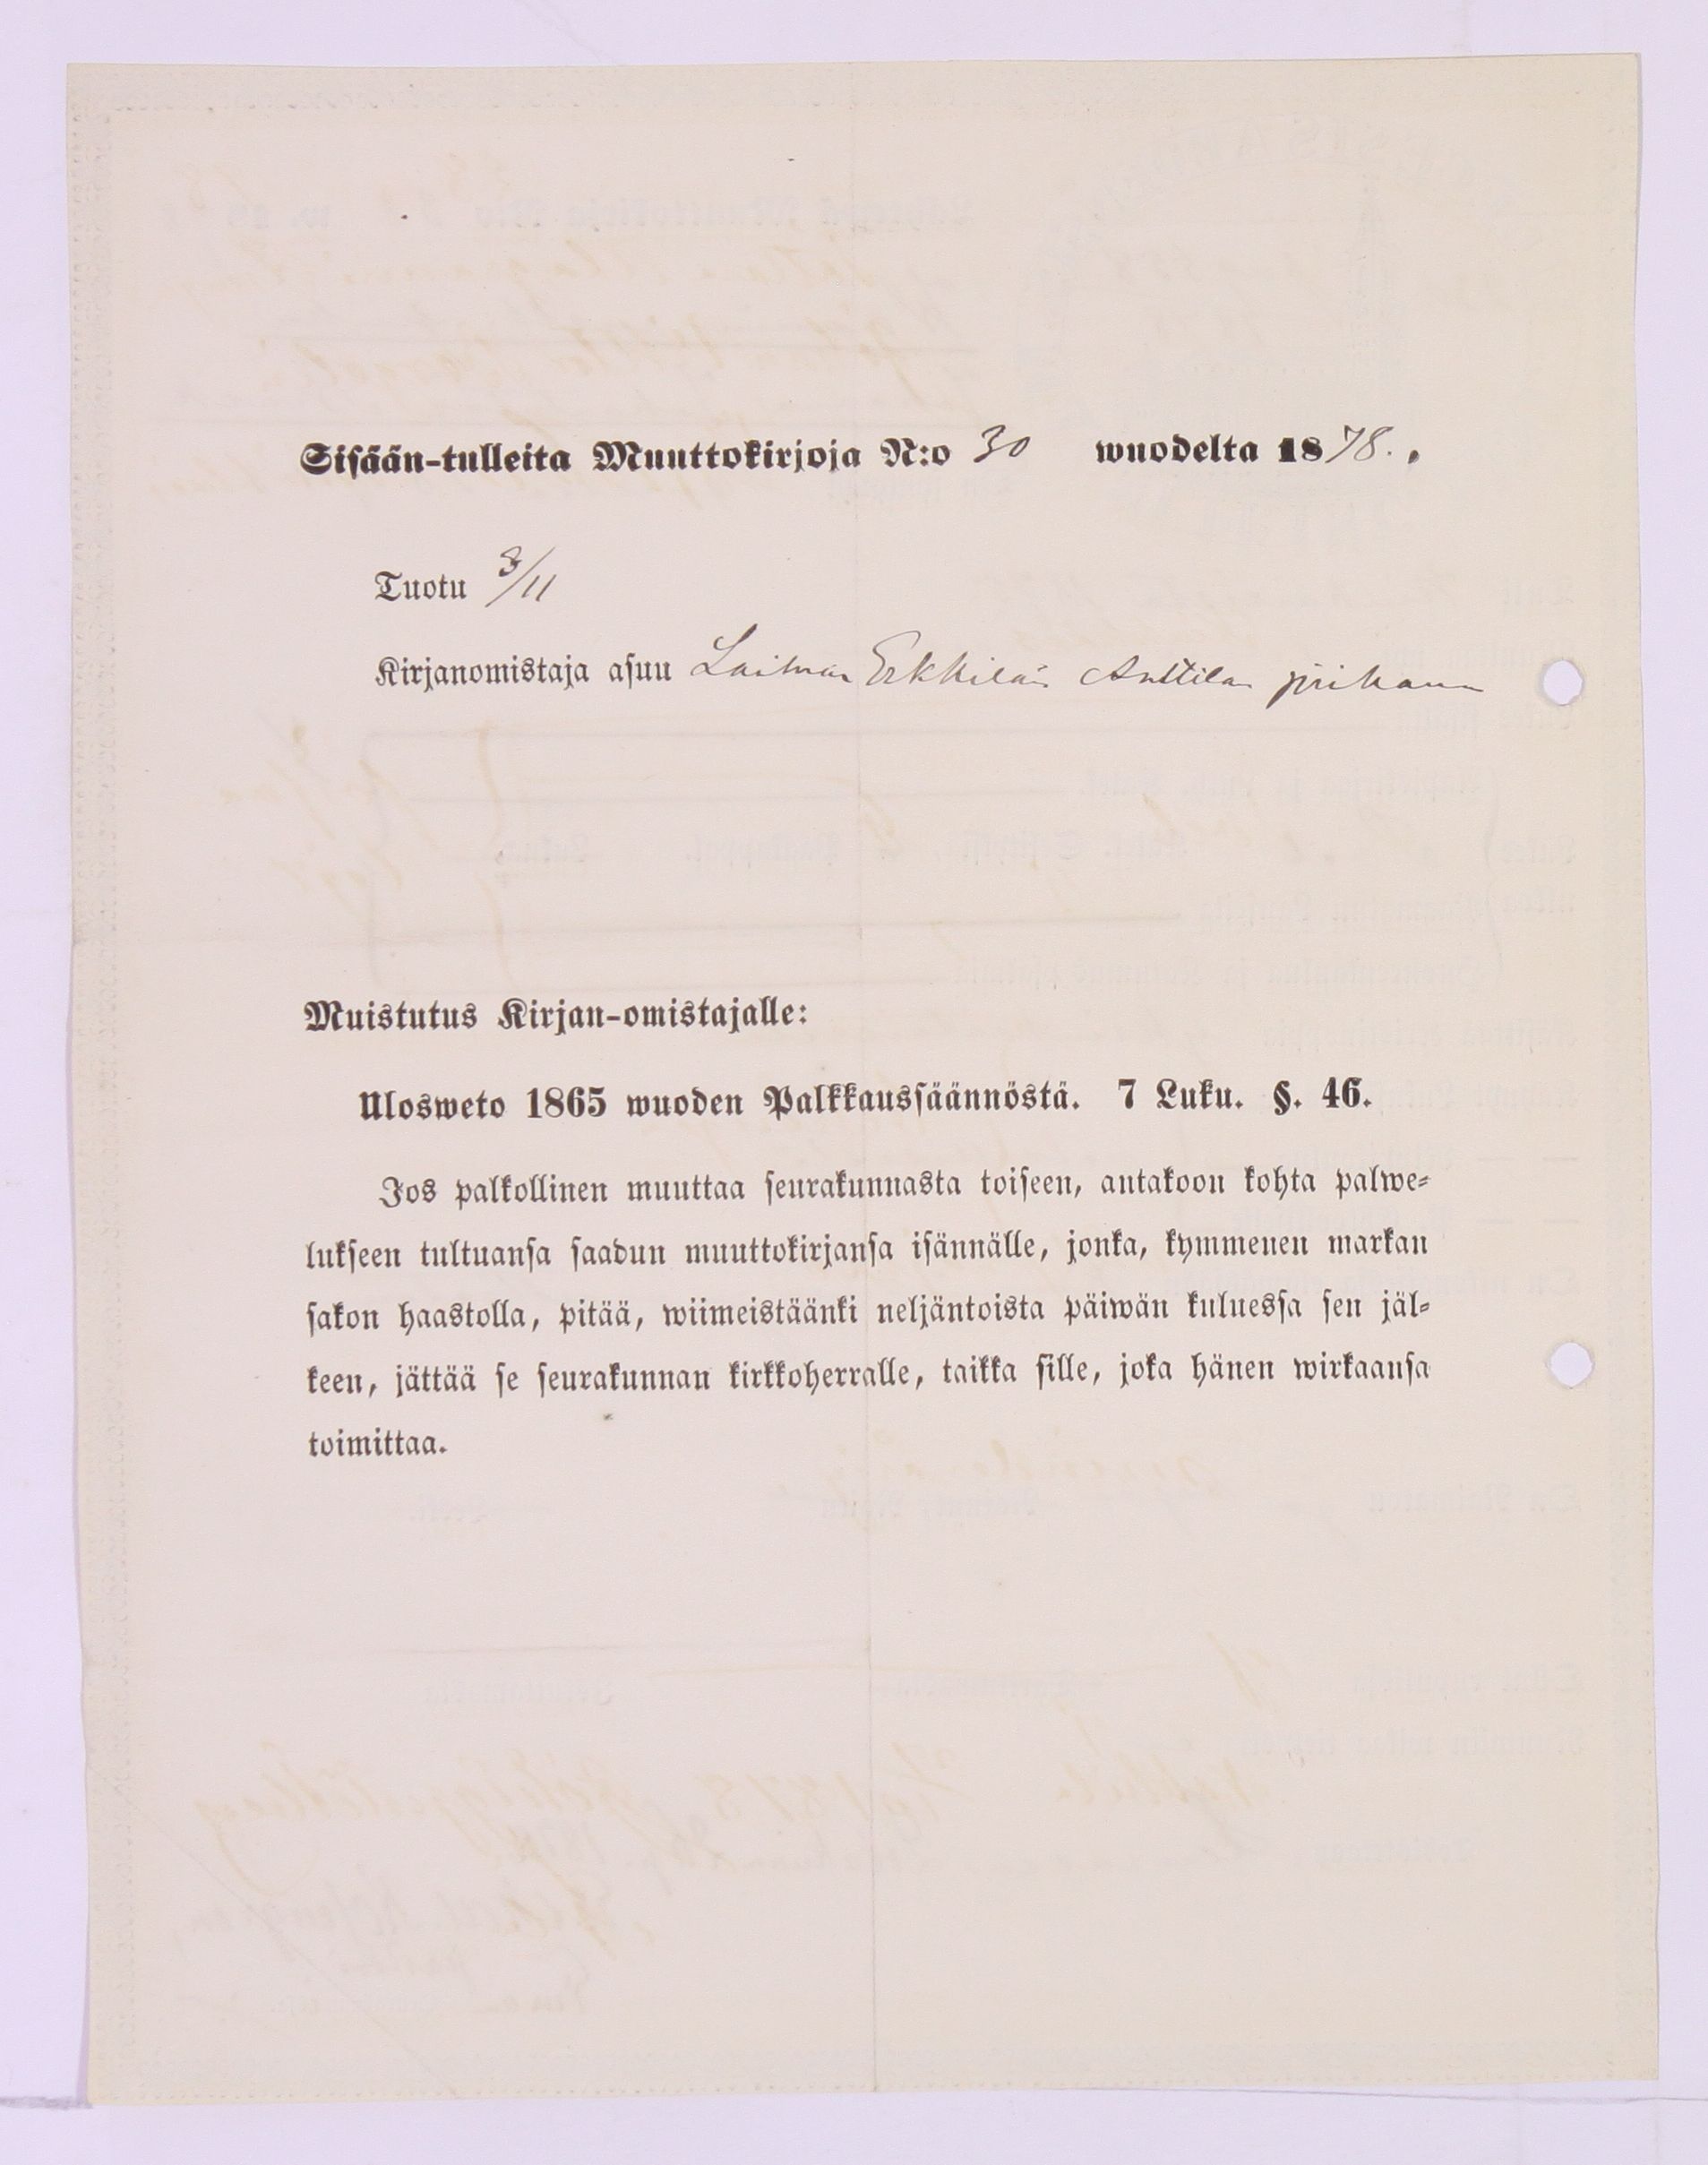 Sisään-tulleita Muuttokirjoja N:o 30 wuodelta 1878.
Tuotu 3/11
Kirjanomistaja asuu Erkkilän Anttilan
Muistutus Kirjan-omistajalle:
Ulosweto 1865 wuoden Palkkaussäännöstä. 7 Luku. §. 46.
Jos palkollinen muuttaa seurakunnasta toiseen, antakoon kohta palwe-
lukseen tultuansa saadun muuttokirjansa isännälle, jonka, kymmenen markan
sakon haastolla, pitää, wiimeistäänki neljäntoista päiwän kuluessa sen jäl-
keen, jättää se seurakunnan kirkkoherralle, taikka sille, joka hänen wirkaansa
toimittaa.